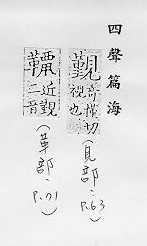 四聲篇海
奇切
視也
(見部、P.63)
近觀
二音
(革部、P.71)